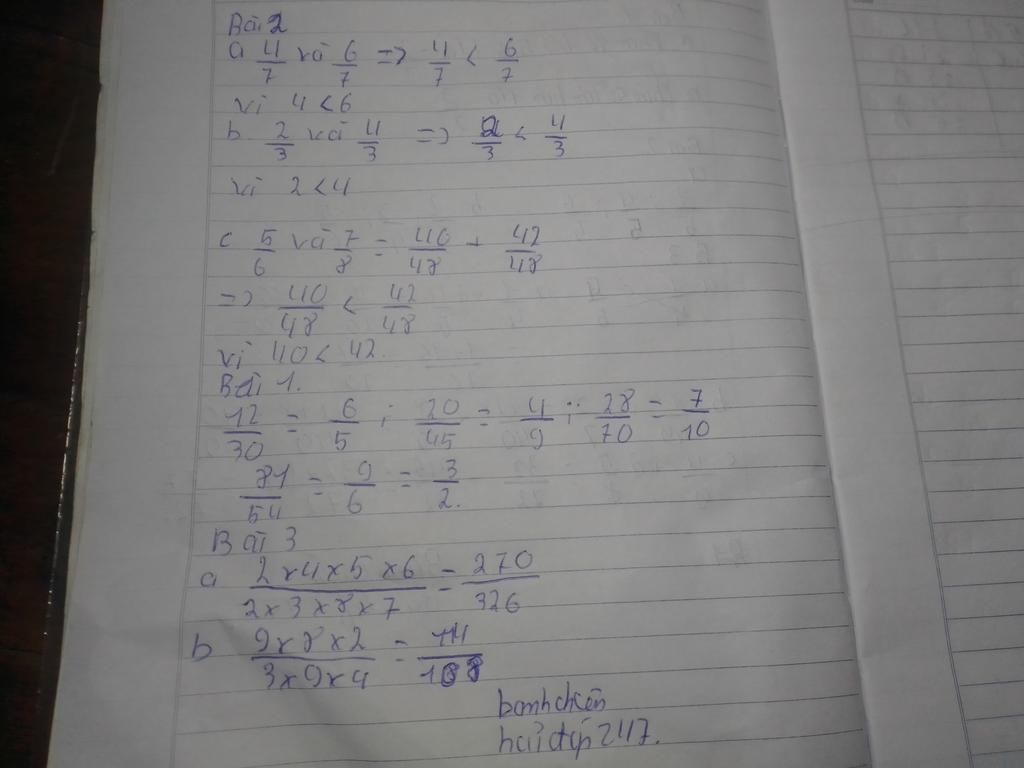 Bài 2
a 4/7 và 6/7 => 4/7 < 6/7
vì 4 < 6
b 2/3 và 4/3 => 2/3 < 4/3
vì 2 < 4
c 5/6 và 7/8 = 40/48 + 42/48
=> 40/48 < 42/48
vì 40 < 42.
Bài 1.
12/30 = 6/5 ; 20/45 = 4/9 ; 28/70 = 7/10
81/54 = 9/6 = 3/2.
Bài 3
a 2×4×5×6/2×3×8×7 = 270/326
b 9×8×2/3×9×4 =
hỏi đáp 247.